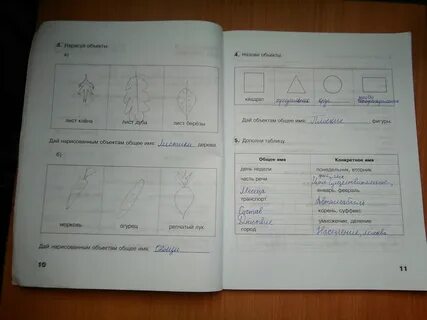 3. Нарисуй объекты.
а)
лист клёна лист дуба лист берёзы
Дай нарисованным объектам общее имя: Листики дерева.
б)
морковь огурец репчатый лук
Дай нарисованным объектам общее имя: Овощи
10
4. Назови объекты.
квадрат треугольник круг
Дай объектам общее имя: Плоские фигуры.
5. Дополни таблицу.
Общее имя Конкретное имя
день недели понедельник, вторник
часть речи
Месяца январь, февраль
транспорт Автомобиль
корень, суффикс
умножение, деление
город Москва
11